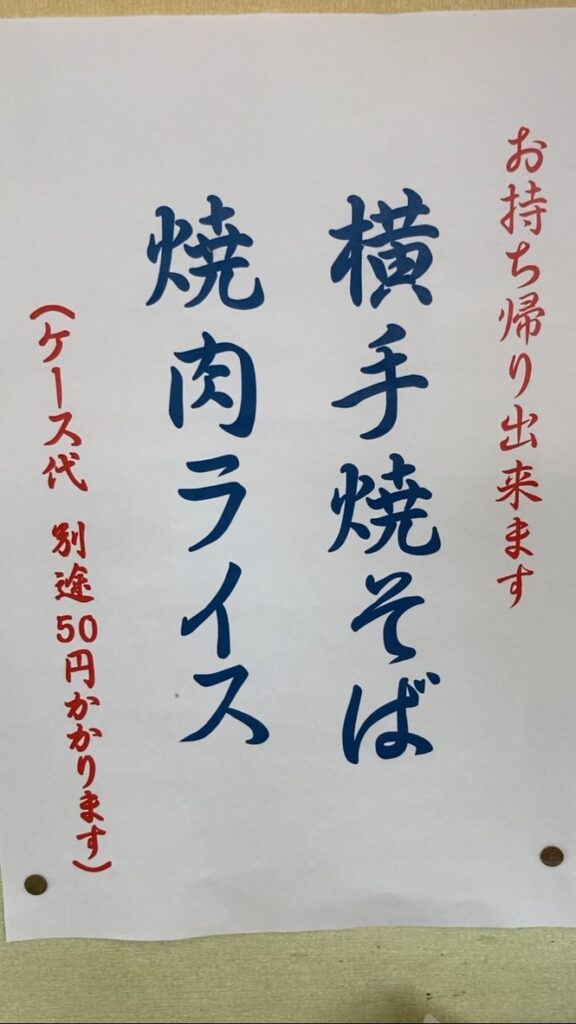 お持ち帰り出来ます
横手焼そば
焼肉ライス
(ケース代 別途50円かかります)